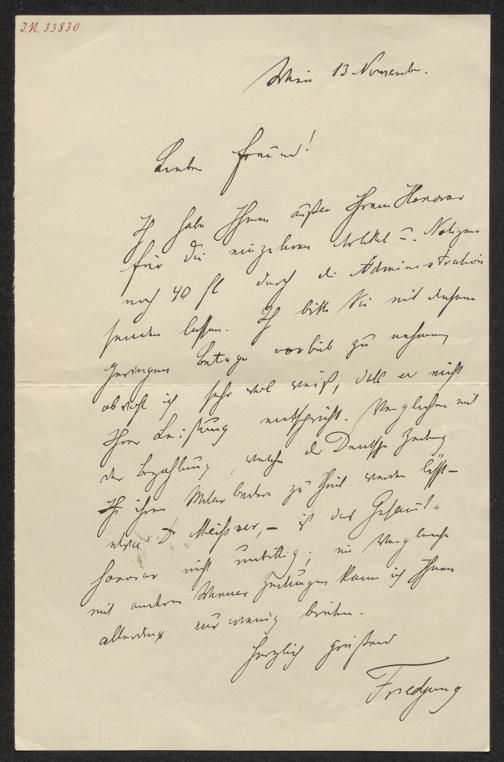 J.N. 33830
Wien 13 November.
Lieber Freund!
Ich habe Ihnen außer Ihrem Honorar
für die einzelnen Artikel u. Notizen
noch 40 fl durch die Administration
senden lassen. Ich bitte Sie mit diesem
geringen Betrage vorlieb zu nehmen
obwohl ich sehr wohl weiß, daß er nicht
Ihrer Leistung entspricht. Verglichen mit
der Bezahlung, welche die Deutsche Zeitung
ihren Mitarbeitern zu Theil werden läßt –
etwa Dr Meißner, – ist das Gesammt-
honorar nicht unbillig; im Vergleiche
mit anderen Wiener Zeitungen kann ich Ihnen
allerdings nur wenig bieten.
Herzlich grüßend
Friedjung